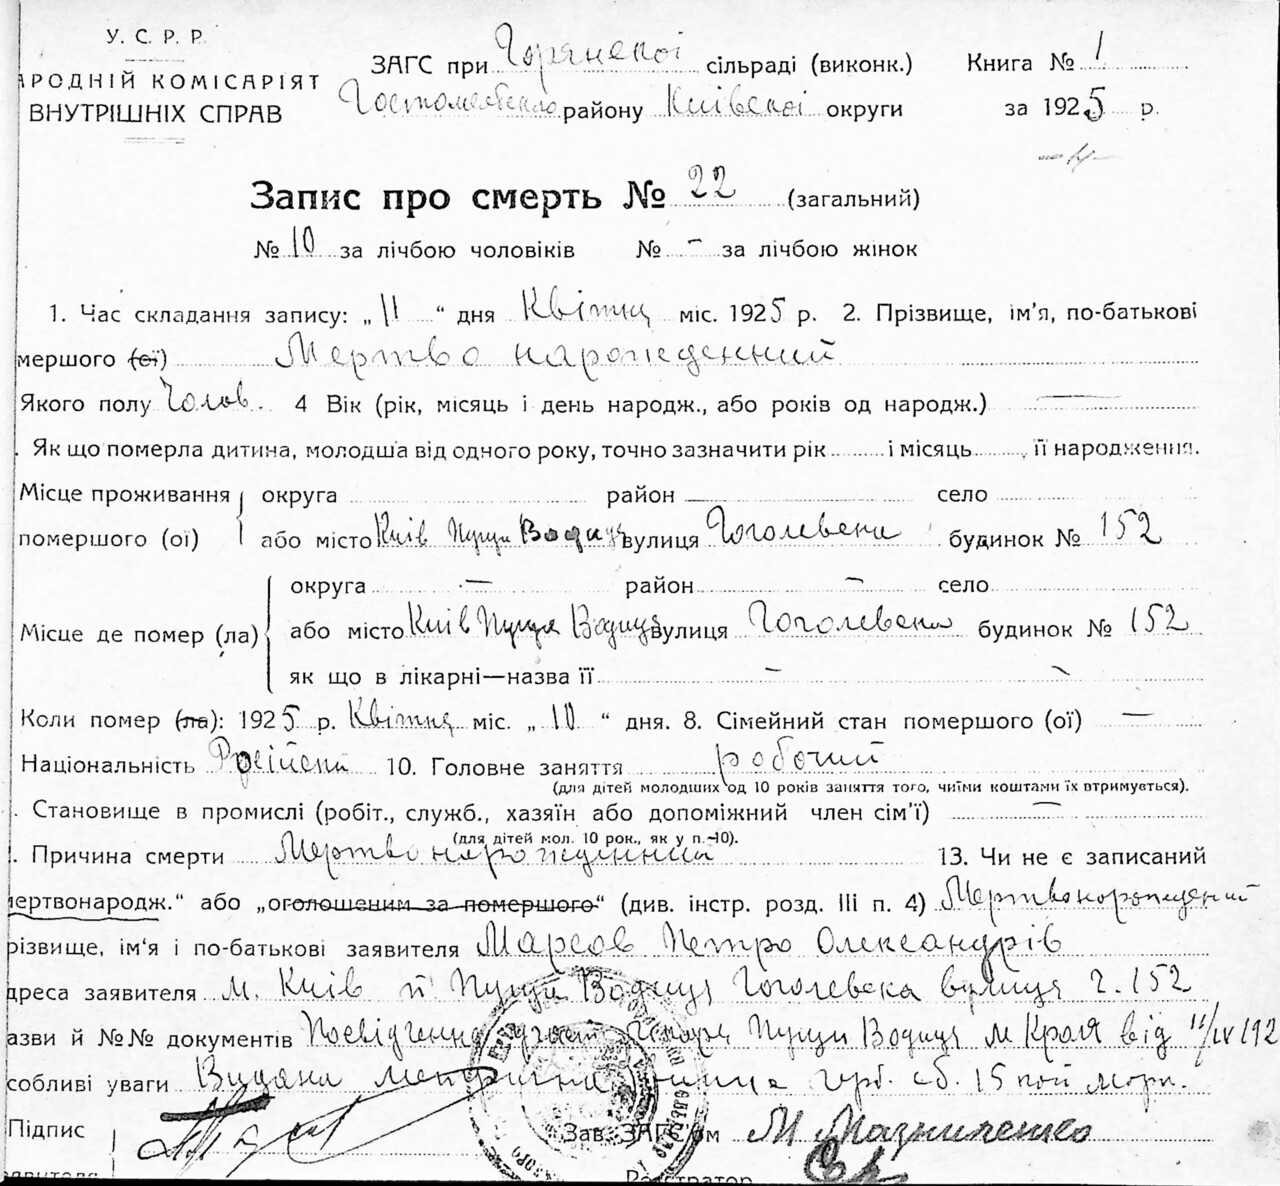 У. С. Р. Р.
АРОДНІЙ КОМІСАРІЯТ
ВНУТРІШНІХ СПРАВ
ЗАГС при Горянскої сільраді (виконк.) Книга № 1
Гостомельского району Київскої округи за 1925 р.
Запис про смерть № 22 (загальний)
№ 10 за лічбою чоловіків № - за лічбою жінок
1. Час складання запису: „11“ дня Квітня міс. 1925 р. 2. Прізвище, ім'я, по-батькові
мершого (ої) Мертво народженний
Якого полу Чолов. 4 Вік (рік, місяць і день народж., або років од народж.) —
. Як що померла дитина, молодша від одного року, точно зазначити рік і місяць , її народження.
Місце проживання округа район — село
помершого (ої) або місто Київ Пуща Водиця вулиця Гоголевска будинок № 152
округа — район — село
Місце де помер (ла) або місто Київ Пуща Водиця вулиця Гоголевска будинок № 152
як що в лікарні—назва її — —
Коли помер (ла): 1925 р. Квітня міс. „10“ дня. 8. Сімейний стан помершого (ої) —
Національність Російский 10. Головне заняття робочий
(для дітей молодших од 10 років заняття того, чиїми коштами їх втримується).
. Становище в промислі (робіт., служб., хазяїн або допоміжний член сім'ї) —
(для дітей мол. 10 рок., як у п.-10).
. Причина смерти Мертвонарожденний 13. Чи не є записаний
мертвонародж.“ або „оголошеним за помершого“ (див. інстр. розд. III п. 4) Мертвонорождений
різвище, ім'я і по-батькові заявителя Марсов Петро Олександрів
дреса заявителя м. Київ й Пуща Водиця Гоголевска вулиця ч. 152
азви й №№ документів Посвідчення Пущи Водиця м від 11/IV 192
собливі уваги Видана 15
Підпис Зав. ЗАГ'ом М
Реєстратор